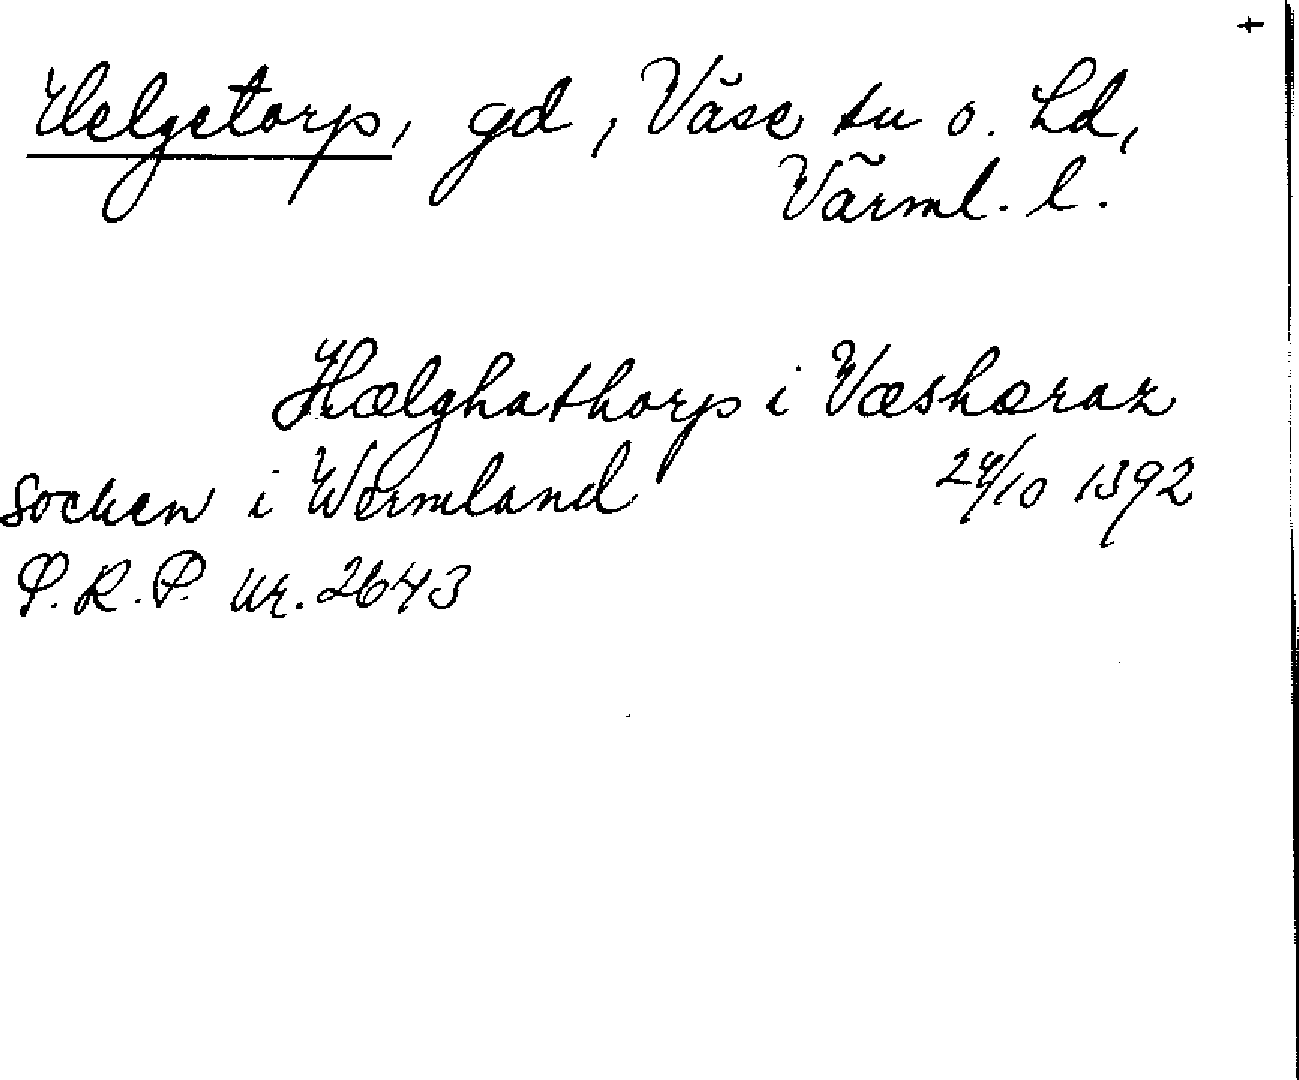 +
Helgetorp, gd, Väse sn o. hd,
Värml. l.
Hælghathorp i Væshæraz
socken i Wermland 24/10 1392
S.R.P. nr. 2643